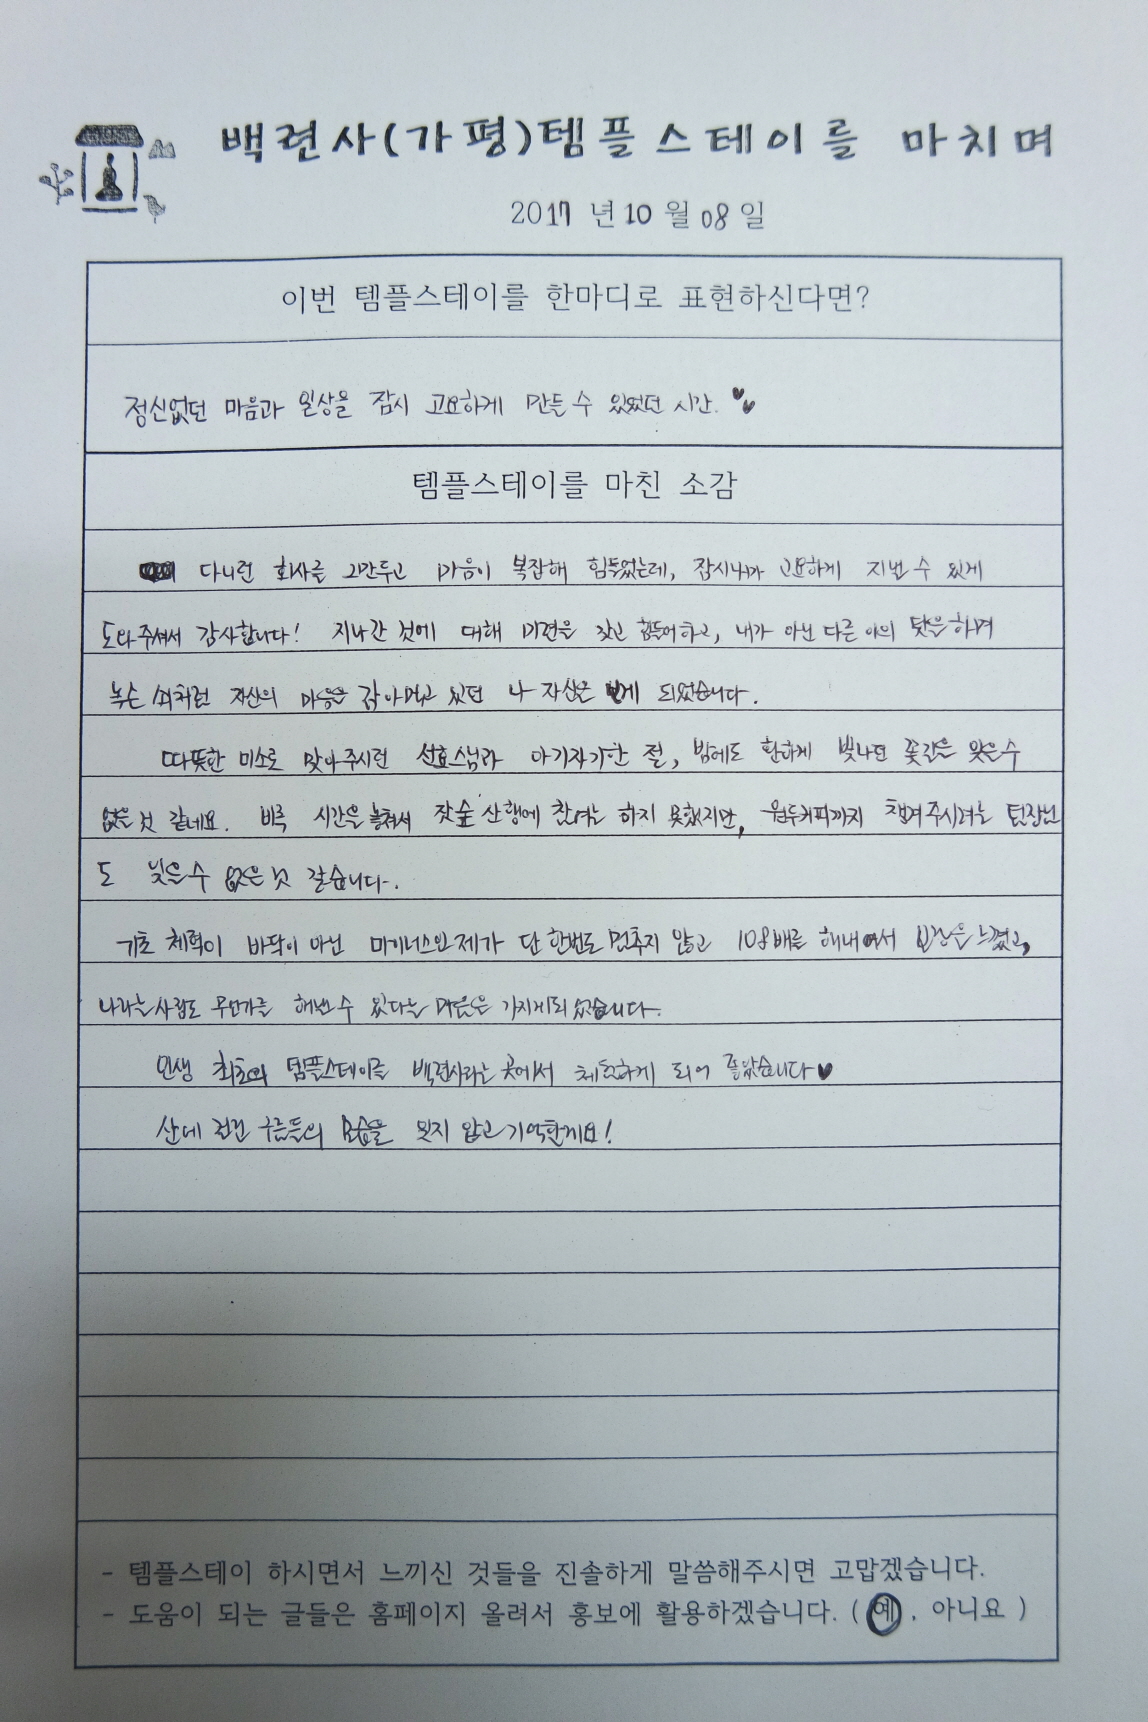 백련사(가평)템플스테이를 마치며
2017 년 10 월 08 일
이번 템플스테이를 한마디로 표현하신다면?
정신없던 마음과 일상을 잠시 고요하게 만들 수 있었던 시간.
템플스테이를 마친 소감
다니던 회사를 그만두고 마음이 복잡해 힘들었는데, 잠시나마 고요하게 지낼 수 있게
도와주셔서 감사합니다! 지나간 것에 대해 미련을 갖고 힘들어하고, 내가 아닌 다른 이의 탓을하며
녹슨 쇠처럼 자신의 마음을 갉아먹고 있던 나 자신을 보게 되었습니다.
따뜻한 미소로 맞아주시던 선효스님과 아기자기한 절, 밤에도 환하게 빛나던 꽃길은 잊을수
없을 것 같네요. 비록 시간을 놓쳐서 잣숲 산행에 참여는 하지 못했지만, 원두커피까지 챙겨주시려는 팀장님
도 잊을수 없을 것 같습니다.
기초 체력이 바닥이 아닌 마이너스인 제가 단 한번도 멈추지 않고 108배를 해내어서 보람을 느꼈고,
나라는 사람도 무언가를 해낼수 있다는 마음을 가지게되었습니다.
인생 최초의 템플스테이를 백련사라는 곳에서 체험하게 되어 좋았습니다♥
산에 걸린 구름들의 모습을 잊지 않고 기억할게요!
- 템플스테이 하시면서 느끼신 것들을 진솔하게 말씀해주시면 고맙겠습니다.
- 도움이 되는 글들은 홈페이지 올려서 홍보에 활용하겠습니다. ( 예 , 아니요 )